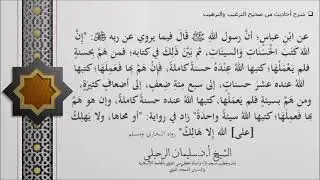 شرح أحاديث من صحيح الترغيب والترهيب
عن ابن عباس؛ أنَّ رسول الله ﷺ قال فيما يروي عن ربه ﷻ: "إنَّ
الله كتب الحسنات والسيئات، ثم بيّن ذلك في كتابه؛ فمن همَّ بحسنة
فلم يعملها، كتبها الله عنده حسنة كاملة، فإن همَّ بها فعملها؛ كتبها
الله عنده عشر حسنات، إلى سبع مئة ضعف، إلى أضعاف كثيرة،
ومن همَّ بسيئة فلم يعملها، كتبها الله عنده حسنة كاملة، وإن هو همَّ
بها فعملها؛ كتبها الله سيئة واحدة" زاد في رواية: "أو محاها، ولا يهلك
[على] الله إلا هالك" رواه البخاري ومسلم
الشيخ أ.د سليمان الرحيلي